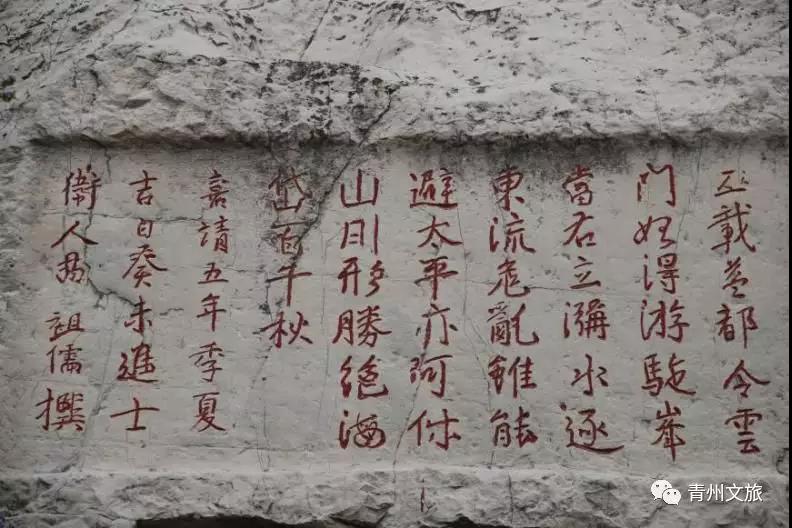 五載益都令雲
門始得游駝峯
當右立瀰水逐
東流危亂雖能
避太平亦何休
山川形勝絕海
岱百千秋
嘉靖五年季夏
吉日癸未進士
衛人祖儒撰
青州文旅